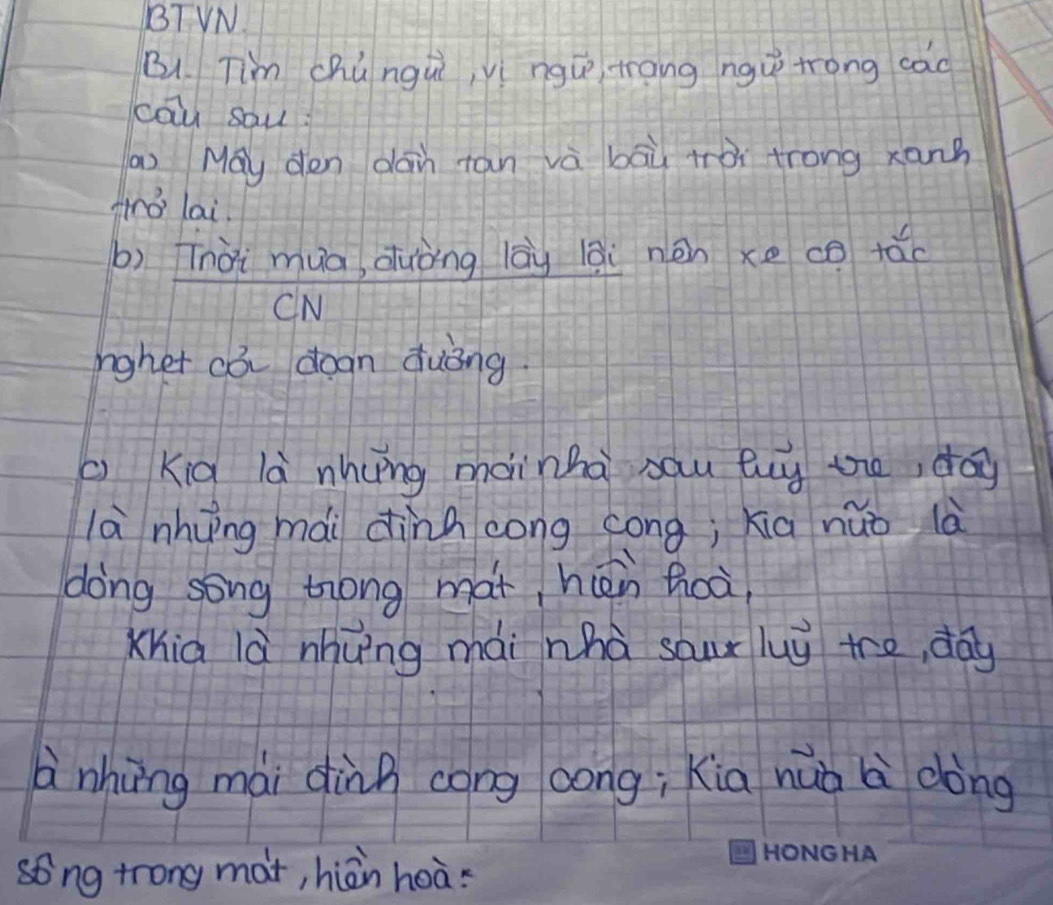 BTVN.
B1. Tìm chủ ngữ, vị ngữ, trạng ngữ trong các
câu sau:
a) Mây đen dần tan và bầu trời trong xanh
trở lại.
b) Trời mưa, đường lầy lội nên xe cộ tắc
CN
nghẹt cả đoạn đường.
c) Kia là những mái nhà sau luỹ tre, đây
là những mái đình cong cong; kia nữa là
dòng sông trong mát, hiền hoà,
Khia là những mái nhà sau luỹ tre, đây
là những mái đình cong cong; Kia nữa là dòng
sông trong mát, hiền hoà.
HONG HA